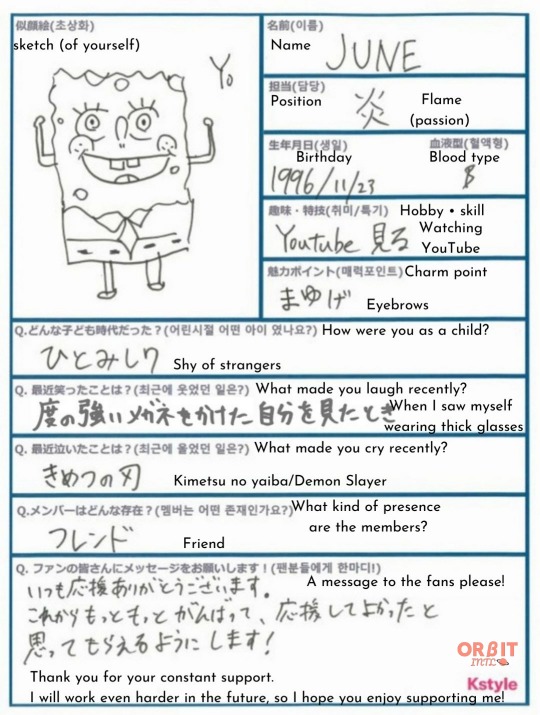 似顔絵(초상화)
sketch (of yourself)
Yo
名前(이름)
Name
JUNE
担当(담당)
Position
炎
Flame
(passion)
生年月日(생일)
Birthday
1996/11/23
血液型(혈액형)
Blood type
B
趣味・特技(취미/특기)
Hobby • skill
Youtube 見る
Watching
YouTube
魅力ポイント(매력포인트)
Charm point
まゆげ
Eyebrows
Q.どんな子ども時代だった？(어린시절 어떤 아이 였나요?)
How were you as a child?
ひとみしり
Shy of strangers
Q. 最近笑ったことは？(최근에 웃었던 일은?)
What made you laugh recently?
度の強いメガネをかけた自分を見たとき
When I saw myself
wearing thick glasses
Q. 最近泣いたことは？(최근에 울었던 일은?)
What made you cry recently?
きめつの刃
Kimetsu no yaiba/Demon Slayer
Q.メンバーはどんな存在？(멤버는 어떤 존재인가요?)
What kind of presence
are the members?
フレンド
Friend
Q. ファンの皆さんにメッセージをお願いします！(팬분들에게 한마디!)
A message to the fans please!
いつも応援ありがとうございます。
これからもっともっとがんばって、応援してよかったと
思ってもらえるようにします！
Thank you for your constant support.
I will work even harder in the future, so I hope you enjoy supporting me!
ORBIT
INTL
Kstyle